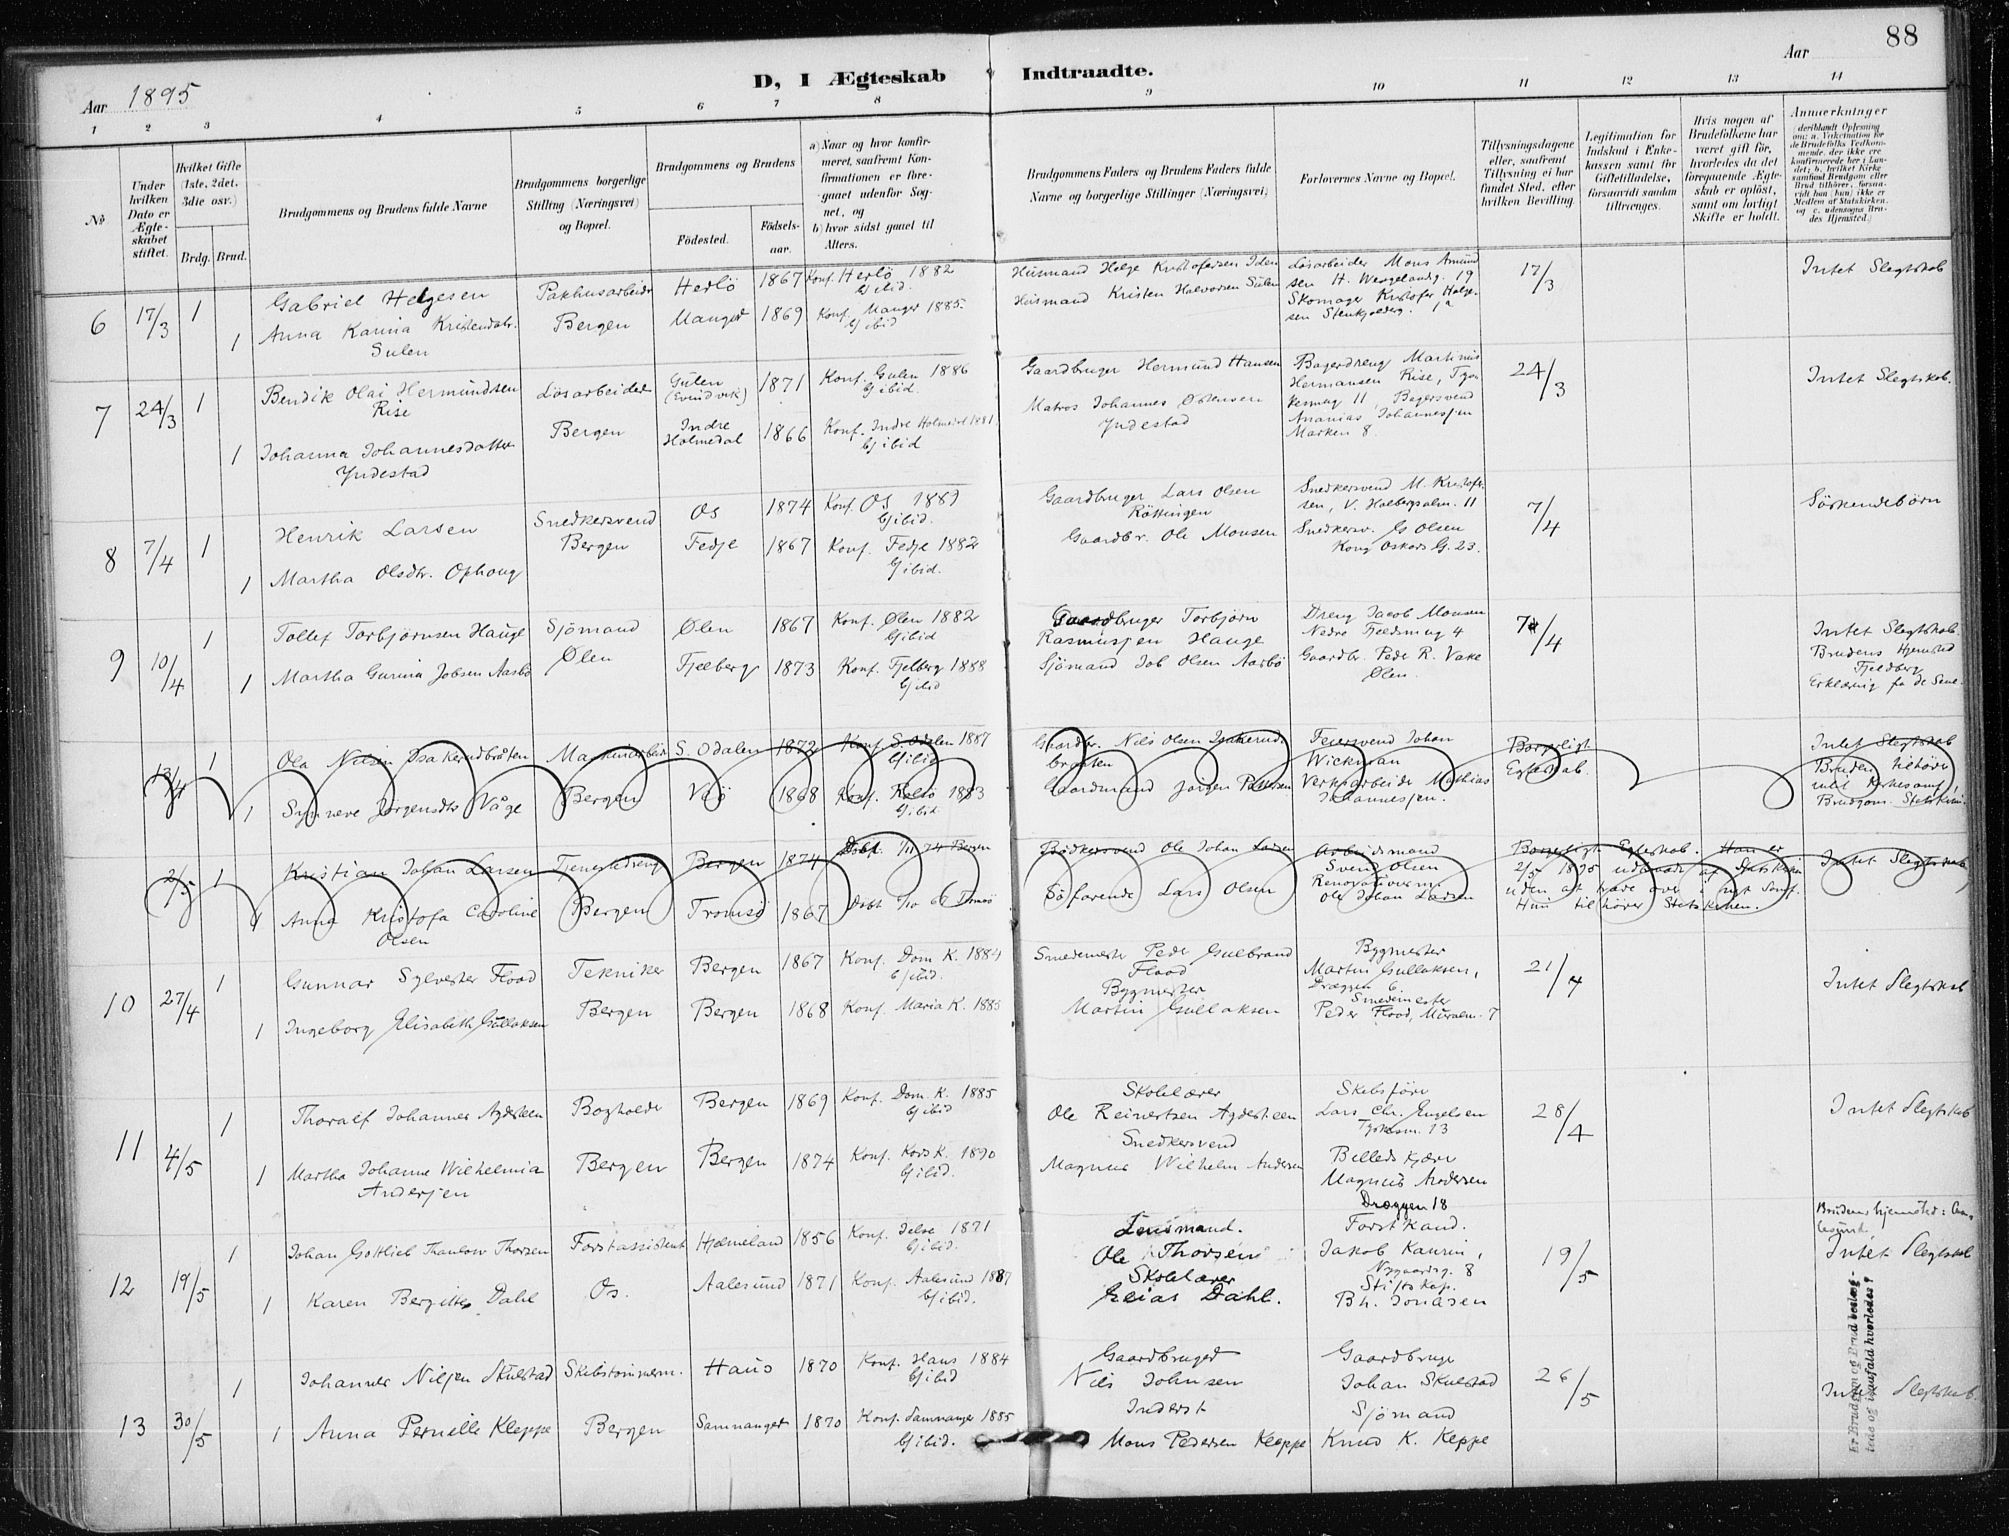 88
D, I Ægteskab Indtraadte.
Aar 1895
Aar
1 2 3 4 5 6 7 8 9 10 11 12 13 14
No
Under hvilken Dato er Ægteskabet stiftet.
Hvilket Gifte (1ste, 2det, 3die osv.)
Brdg. Brud.
Brudgommens og Brudens fulde Navne
Brudgommens borgerlige Stilling (Næringsvei) og Bopæl.
Brudgommens og Brudens
Fødested.
Fødsels-aar.
a) Naar og hvor konfirmeret, saafremt Konfirmationen er foregaaet udenfor Sognet, og
b) hvor sidst gaaet til Alters.
Brudgommens Faders og Brudens Faders fulde Navne og borgerlige Stillinger (Næringsvei)
Forlovernes Navne og Bopæl.
Tillysningsdagene eller, saafremt Tillysning ei har fundet Sted, efter hvilken Bevilling.
Legitimation for Indskud i Enkekassen samt for Giftetilladelse, forsaavidt saadan tiltrænges.
Hvis nogen af Brudefolkene har været gift før, hvorledes da det foregaaende Ægteskab er opløst, samt om lovligt Skifte er holdt.
Anmærkninger
(deriblandt Oplysning om: a. Vakcination for de Brudefolks Vedkommende, der ikke ere konfirmerede her i Landet; b. hvilket Kirkesamfund Brudgom eller Brud tilhører, forsaavidt han (hun) ikke er Medlem af Statskirken, og c. udensogns Brudes Hjemsted.)
6 17/3 1 Gabriel Helgesen Pakhusarbeider Herlö 1867 Konf. Herlö 1882 Gj ibid. Husmand Helge Kristofersen Løsarbeider Mons Amundsen H. Wergelandsg. 19 17/3 Intet Slegtskab
1 Anna Karina Kristendatr. Sulen Bergen Manger 1869 Konf. Manger 1885 Gj ibid Husmand Kristen Halvorsen Sulen Skomager Kristofer Helgesen
7 24/3 1 Bendik Olai Hermundsen Rise Løsarbeider Gulen (Evindvik) 1871 Konf. Gulen 1886 Gj ibid. Gaardbruger Hermund Hansen Bagerdreng Martinus Hermansen Rise, 11, Bagersvend 24/3 Intet Slegtskab.
1 Johanna Johannesdatter Yndestad Bergen Indre Holmedal 1866 Konf. Indre Holmedal 1881 Gj ibid Matros Johannes Yndestad Ananias Johannesen Marken 8
8 7/4 1 Henrik Larsen Snedkersvend Os 1874 Konf. Os 1889 Gj ibid. Gaardbruger Lars Olsen Röttingen Snedkersvend M. Kristofersen, V. Holbergsalm. 11 7/4 Söskendebørn
1 Martha Olsdtr. Ophoug Bergen Fedje 1867 Konf. Fedje 1882 Gj ibid. Gaardbr. Ole Monsen Snedkersv. G Olsen Kong Oskars G. 23.
9 10/4 1 Tollef Torbjørnsen Hauge Sjömand Ølen 1867 Konf. Ølen 1882 Gj ibid Gaardbruger Torbjørn Rasmussen Hauge Dreng Jacob Monsen Nedre Fjeldsmug 4 7/4 Intet Slegtskab
1 Martha Gurina Jobsen Aasbö Ølen Fjelberg 1873 Konf. Fjelberg 1888 Gj ibid Sjömand Job Olsen Aasbö Gaardbr. Peder R. Vake Ølen. Brudens Hjemsted Fjeldberg
13/4 1 Ola Nilsen S. Odalen 1872 Konf. S. Odalen 1887 Gj ibid Gaardbr. Nils Olsen Feiersvend Johan Wickman Borgerligt Egteskab. Intet Slegtskab
1 Synneve Jørgensdtr Våge Bergen 1868 1883 Gj ibid. Gaardmand Jörgen Pettersen Verksarbeider Mathias Johannesen. Bruden tilhører intet Kirkesamf. Brudgom. Statskirken.
2/5 1 Kristian Johan Larsen Tjenestedreng Bergen 1874 Döbt 74 Bergen Bødkersvend Ole Johan Larsen Arbeidsmand Sven Olsen Borgerligt Egteskab. Han er 2/5 1895 udtraadt af Statskirken uden at træde over i nyt Samf. Intet Slegtskab
1 Anna Kristofa Caroline Olsen Bergen Tromsö 1867 Döbt Tromsö Söfarende Lars Olsen Renovationsm. Ole Johan Larsen Hun tilhører Statskirken.
10 27/4 1 Gunnar Sylvester Flood Tekniker Bergen 1867 Konf. Dom K. 1884 Gj ibid. Smedemester Peder Gulbrand Flood Bygmester Martin Gullaksen, Dræggen 6 21/4 Intet Slegtskab
1 Ingeborg Elisabeth Gullaksen Bergen Bergen 1868 Konf. Maria K. 1885 Bygmester Martin Gullaksen Smedemester Peder Flood, Muralm. 7
11 4/5 1 Thoralf Johannes Agdesteen Bogholder Bergen 1869 Konf. Dom. K. 1885 Gj ibid Skolelærer Ole Reinertsen Agdesteen Skibsfører Lars Chr. Engelsen Tyskesm. 13 28/4 Intet Slegtskab
1 Martha Johanne Wilhelmia Andersen Bergen Bergen 1874 Konf. Kors K. 1890 Gj ibid. Snedkersvend Magnus Wilhelm Andersen Billedskjærer Magnus Andersen Dræggen 18
12 19/5 1 Johan Gottlieb Thaulow Thorsen Forstassistent Hjelmeland 1856 Konf. Jelse 1871 Gj ibid. Lensmand. Ole Thorsen Forstkand. Jakob Kaurin, Nygaardsg. 8 19/5 Brudens hjemsted: Aalesund. Intet Slegtskab
1 Karen Bergitte Dahl Os. Aalesund 1871 Konf. Aalesund 1887 Gj ibid. Skolelærer Elias Dahl. Stiftskap. Bh. Jonasen
13 30/5 1 Johannes Nilsen Skulstad Skibstømmerm. Haus 1870 Konf. Haus 1884 Gj ibid Gaardbruger Nils Johnsen Gaardbruger Johan Skulstad 26/5 Intet Slegtskab
1 Anna Pernille Kleppe Bergen Samnanger 1870 Konf. Samnanger 1885 Gj ibid. Inderst Mons Pedersen Kleppe Sjömand Knud K. Keppe
Er Brudgom og Brud beslægtede og i saafald hvorledes?